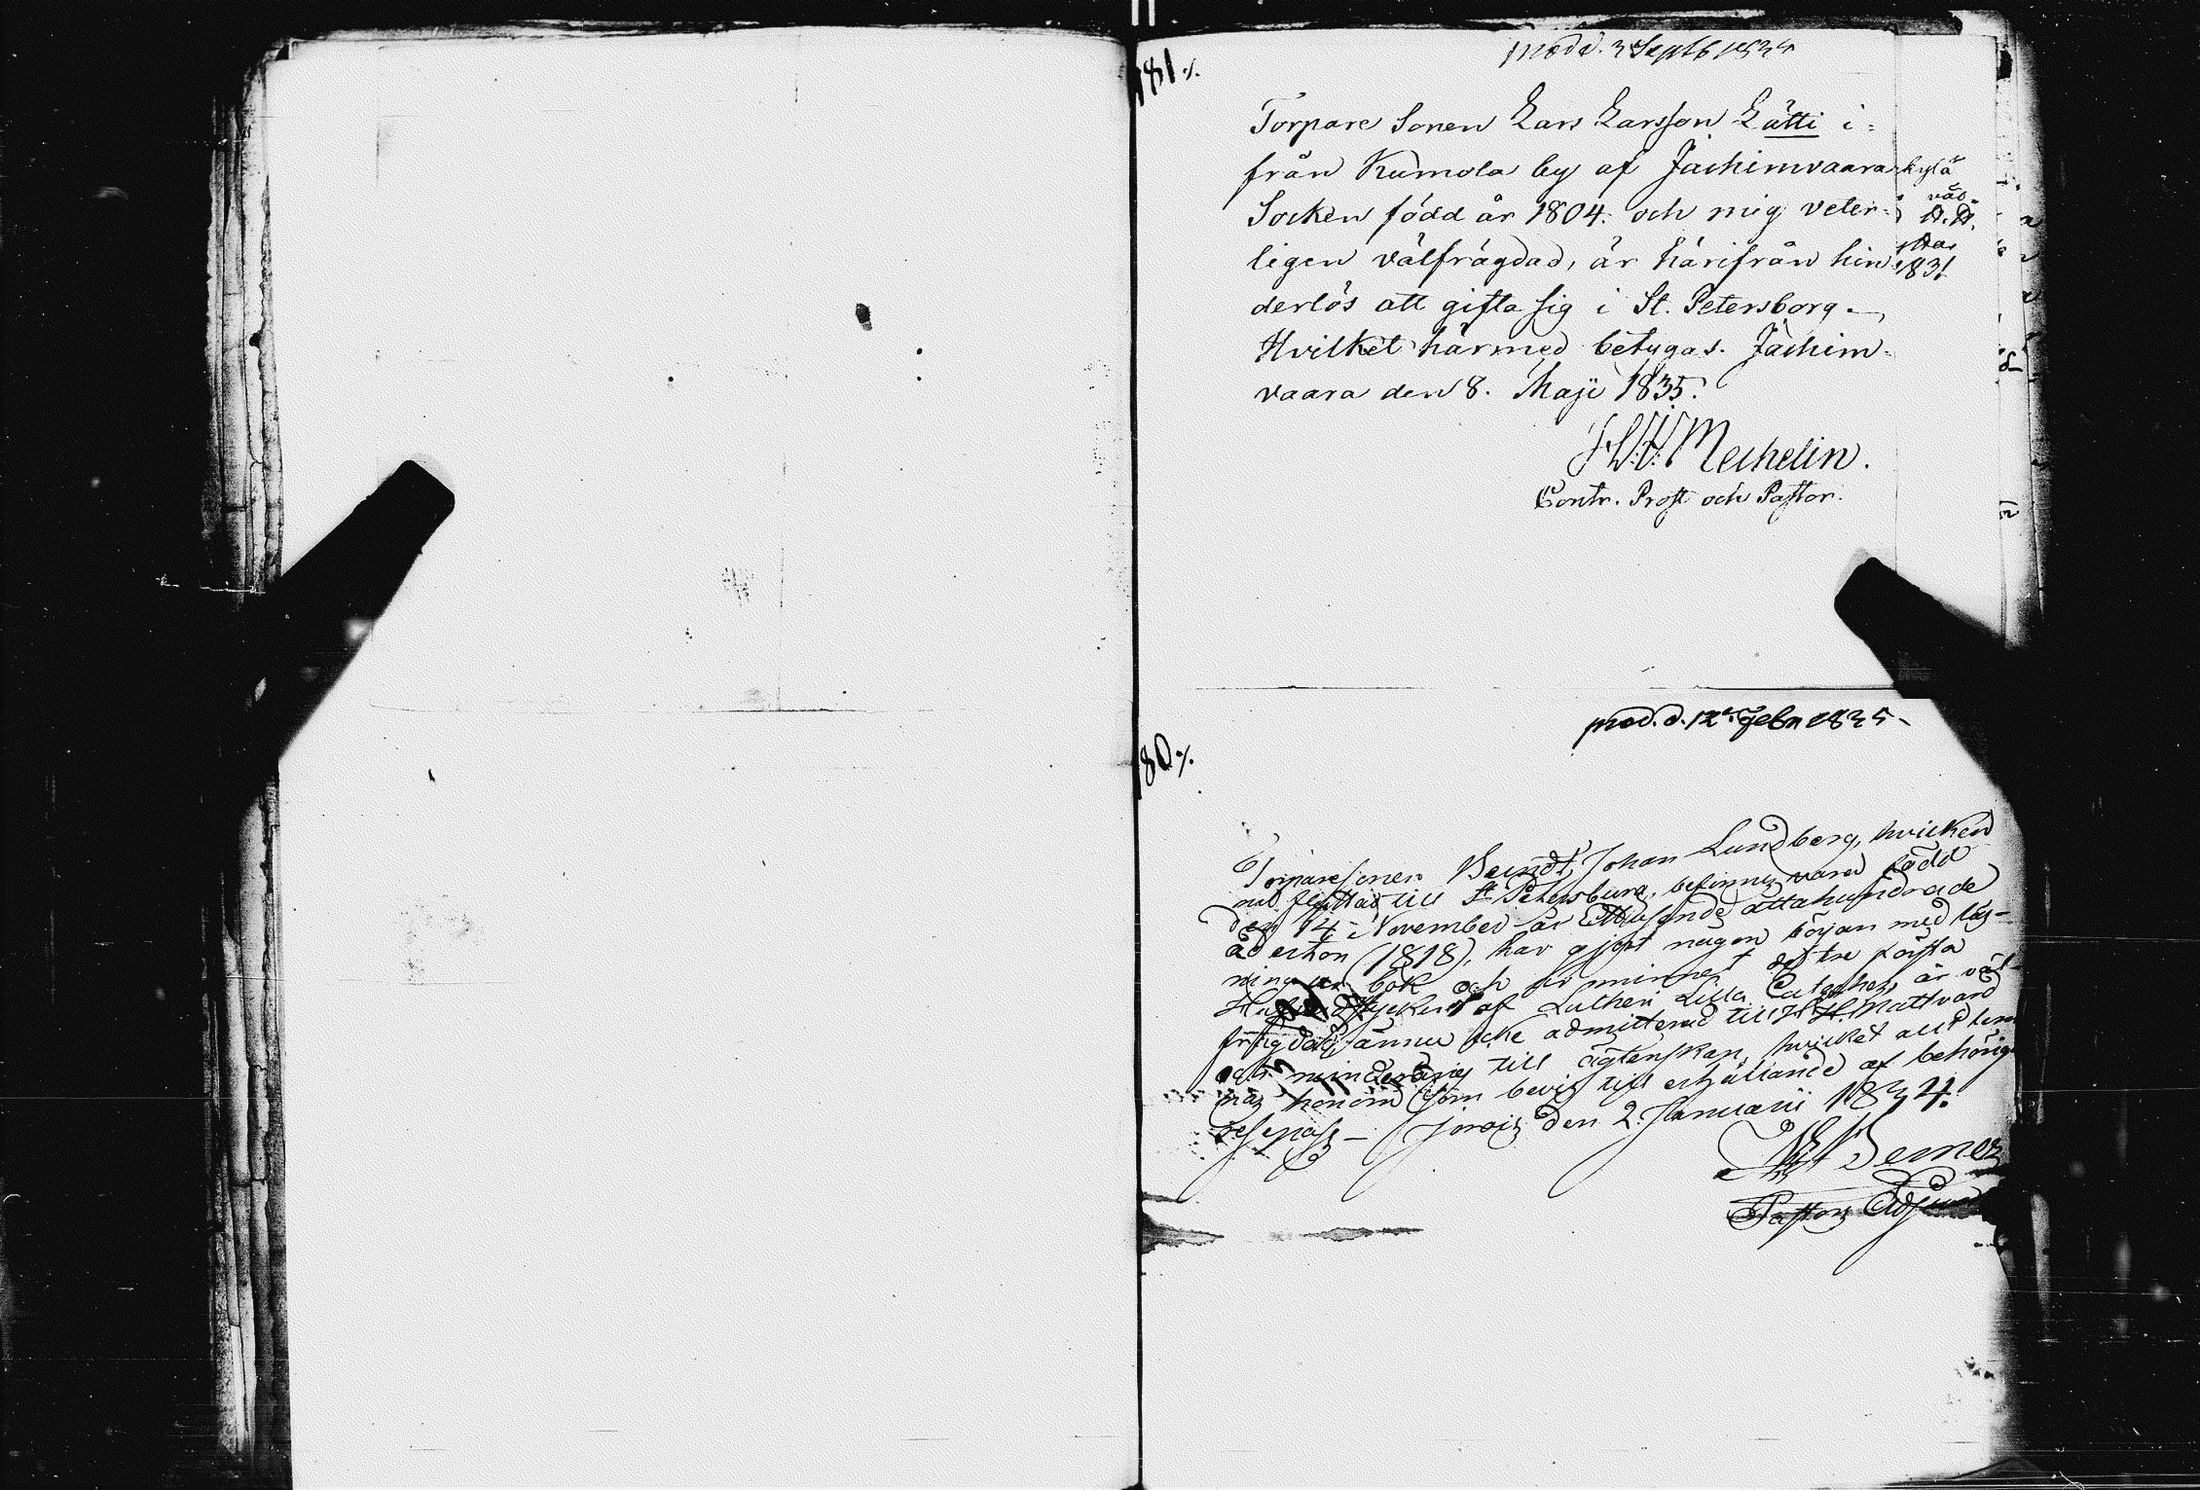 181 ⁒.
prod d. 3 Septb 1835
Torpare Sonen Lars Larsson Lätti i=
från Kumola by af Jachimvaara
Socken född år 1804. och mig veter=
ligen välfrägdad, är härifrån hin=
derlös att gifta sig i St. Petersborg.
Hvilket härmed betygas. Jachim=
vaara den 8. Maji 1835.
Mechelin.
Contr. Prost och Pastor.
kylä
väl
1831
180 ⁒.
prod. d. 12 Febr 1835
Torparesonen Berndt Johan Lundberg, hvilken
nu flyttat till St Petersburg, befinnes vara född
den 14 November år Ettusende åttahundrade
aderton (1818), har gjort någon början med läs-
ning ur bok och för minnet det tre första
Hufvudstycken af Lutheri Lilla Cateches, är väl-
frägdad, ännu icke admitterad till H. H. Nattvard
och minderårig till ägtenskap, hvilket allt
honom som bevis till erhållande af behörig
respass — Jorois den 2 Januarii 1834.
Pastors Adjunct